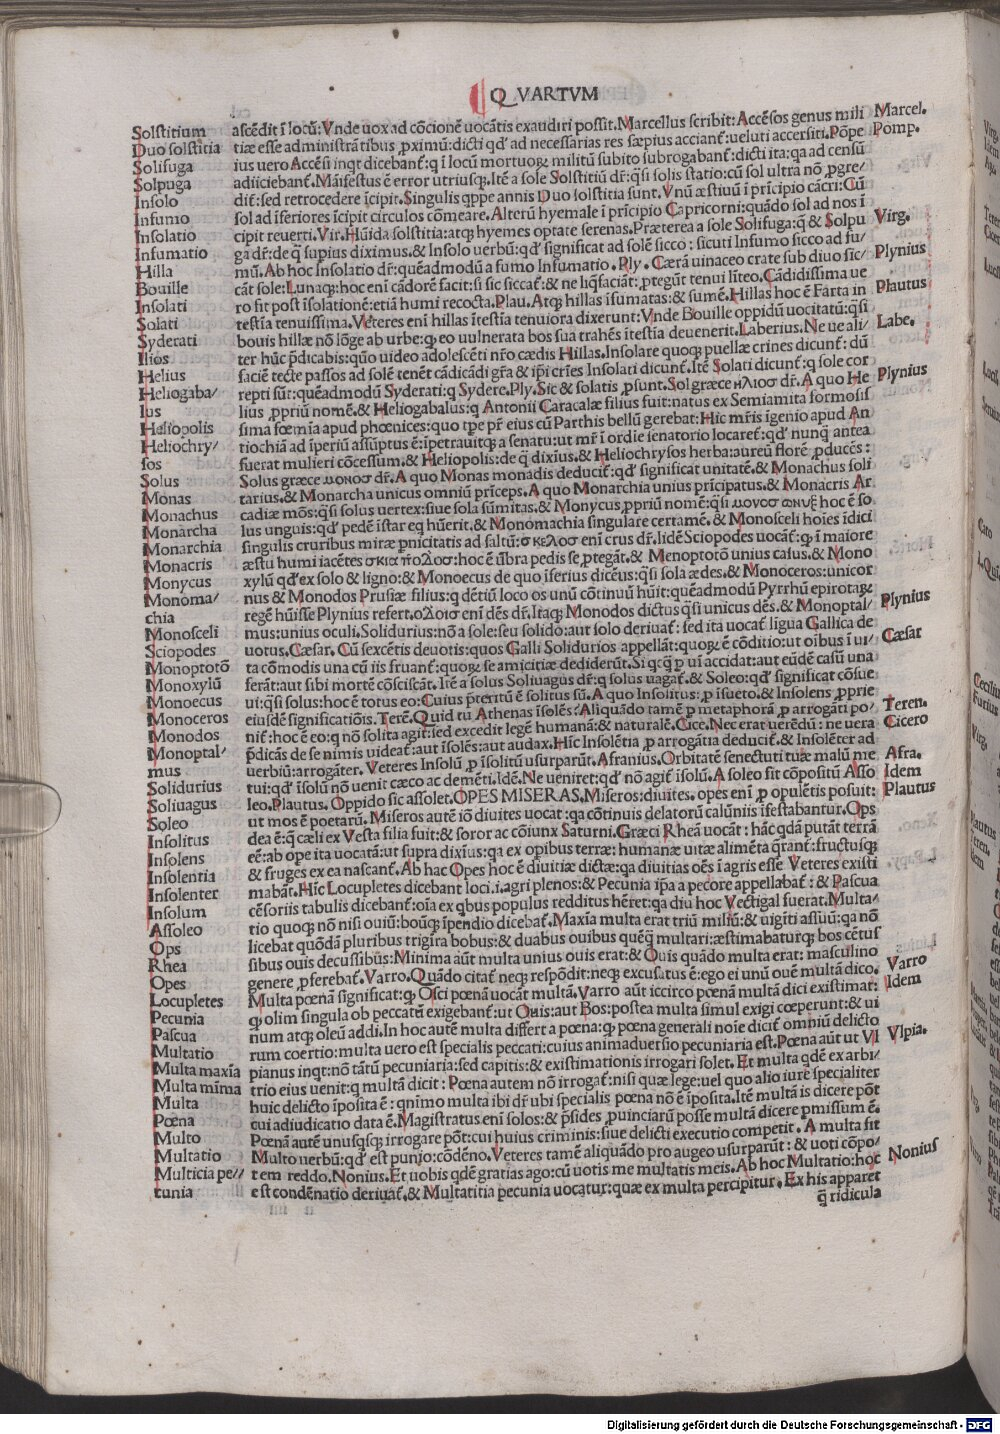 QVARTVM
Solstitium
Duo solstitia
Solifuga
Solpuga
Insolo
Infumo
Insolatio
Infumatio
Hilla
Bouille
Insolati
Solati
Syderati
Ilios
Helius
Heliogaba/
lus
Heliopolis
Heliochry/
sos
Solus
Monas
Monachus
Monarcha
Monarchia
Monacris
Monycus
Monoma/
chia
Monosceli
Sciopodes
Monoptotõ
Monoxylũ
Monoecus
Monoceros
Monodos
Monoptal/
mus
Solidurius
Soliuagus
Soleo
Insolitus
Insolens
Insolentia
Insolenter
Insolum
Assoleo
Ops
Rhea
Opes
Locupletes
Pecunia
Pascua
Multatio
Multa maxĩa
Multa mĩma
Multa
Pœna
Multo
Multatio
Multicia pe//
tunia
ascẽdit ĩ locũ: Vnde uox ad cõcionẽ uocãtis exaudiri possit. Marcellus scribit: Accẽsos genus mili
tiæ esse administrãtibus ꝓximũ: dicti qd' ad necessarias res sæpius acciant̃: ueluti accersiti. Põpe
ius uero Accẽsi inqt dicebant̃: q ĩ locũ mortuoꝝ militũ subito subrogabant̃: dicti ita: qa ad censũ
adiiciebant̃. Mãifestus ẽ error utriusq. Itẽ a sole Solstitiũ dr̃: qsi solis statio: cũ sol ultra nõ ꝓgre/
dit̃: sed retrocedere ĩcipit. Singulis qppe annis Duo solstitia sunt. Vnũ æstiuũ ĩ prĩcipio cãcri: Cũ
sol ad ĩferiores ĩcipit circulos cõmeare. Alterũ hyemale ĩ prĩcipio Capricorni: quãdo sol ad nos ĩ
cipit reuerti. Vir. Hũida solstitia: atqꝫ hyemes optate serenas. Præterea a sole Solifuga: q̃ & Solpu
ga dr̃: de q̃ supius diximus. & Insolo uerbũ: qd' significat ad solẽ sicco: sicuti Infumo sicco ad fu/
mũ. Ab hoc Insolatio dr̃: quẽadmodũ a fumo Infumatio. Ply. Cæra uinaceo crate sub diuo sic/
cãt sole: Lunaqꝫ: hoc eni cãdorẽ facit: si sic siccat̃: & ne liq̃faciãt: ꝓtegũt tenui lĩteo. Cãdidissima ue
ro fit post ĩsolationẽ: etiã humi recocta. Plau. Atqꝫ hillas ĩfumatas: & sumẽ. Hillas hoc ẽ Farta in
testĩa tenuissima. Veteres eni hillas ĩtestĩa tenuiora dixerunt: Vnde Bouille oppidũ uocitatũ: q̃si
bouis hillæ nõ lõge ab urbe: ꝙ eo uulnerata bos sua trahẽs ĩtestĩa deuenerit. Laberius. Ne ue ali/
ter hũc p̃dicabis: quõ uideo adolescẽti nr̃o cædis Hillas. Insolare quoqꝫ puellæ crines dicunt̃: dũ
saciẽ tecte passos ad solẽ tenẽt cãdicãdi gr̃a & ip̃i crĩes Insolati dicunt̃. Itẽ Solati dicunt̃: q sole cor
repti sũt: quẽadmodũ Syderati: q Sydere. Ply. Sic & solatis ꝓsunt. Sol græce ηλιοσ dr̃. A quo He
lius ꝓpriũ nomẽ. & Heliogabalus: q Antonii Caracalæ filius fuit: natus ex Semiamita formosis
sima fœmĩa apud phœnices: quo tpe pr̃ eius cũ Parthis bellũ gerebat: Hic mr̃is ĩgenio apud An
tiochiã ad ĩperiũ assũptus ẽ: ĩpetrauitqꝫ a senatu: ut mr̃ ĩ ordie senatorio locaret̃: qd' nunq̃ antea
fuerat mulieri cõcessum. & Heliopolis: de q̃ dixĩus. & Heliochrysos herba: aureũ florẽ ꝓducẽs:
Solus græce μονοσ dr̃. A quo Monas monadis deducit̃: qd' significat unitatẽ. & Monachus soli
tarius. & Monarcha unicus omniũ prĩceps. A quo Monarchia unius prĩcipatus. & Monacris Ar
cadiæ mõs: q̃si solus uertex: siue sola sũmitas. & Monycus ꝓpriũ nomẽ: q̃si μονοσ ωνυξ hoc ẽ so
lus unguis: qd' pedẽ ĩstar eq hũerit. & Monomachia singulare certamẽ. & Monosceli hoĩes ĩdici
singulis cruribus miræ ꝑnicitatis ad saltũ: σκελοσ eni crus dr̃. Iidẽ Sciopodes uocãt̃: ꝙ ĩ maiore
æstu humi iacẽtes σκια ποδοσ: hoc ẽ ũbra pedis se ꝓtegãt. & Menoptotõ unius casus. & Mono
xylũ qd' ex solo & ligno: & Monoecus de quo ĩferius dicẽus: q̃si sola ædes. & Monoceros: unicor
nus & Monodos Prusiæ filius: q dẽtiũ loco os unũ cõtinuũ hũit: quẽadmodũ Pyrrhũ epirotaꝝ
regẽ hũisse Plynius refert. οδοισ eni dẽs dr̃. Itaqꝫ Monodos dictus q̃si unicus dẽs. & Monoptal/
mus: unius oculi. Solidurius: nõ a sole: seu solido: aut solo deriuat̃: sed ita uocat̃ ligua Gallica de
uotus. Cæsar. Cũ sexcẽtis deuotis: quos Galli Solidurios appellãt: quoꝝ ẽ cõditio: ut oĩbus ĩ ui/
ta cõmodis una cũ iis fruant̃: quoꝝ se amicitiæ dediderũt. Si qcq̃ ꝑ uĩ accidat: aut eũdẽ casũ una
ferãt: aut sibi mortẽ cõsciscãt. Itẽ a solus Soliuagus dr̃: q solus uagat̃. & Soleo: qd' significat cõsue
ui: q̃si solus: hoc ẽ totus eo: Cuius p̃teritũ ẽ solitus sũ. A quo Insolitus: ꝓ ĩsueto. & Insolens ꝓprie
eiusdẽ significatiõis. Terẽ. Quid tu Athenas ĩsolẽs? Aliquãdo tamẽ ꝑ metaphorã ꝓ arrogãti po/
nit̃: hoc ẽ eo: q nõ solita agit: sed excedit legẽ humanã: & naturalẽ. Cice. Nec erat uerẽdũ: ne uera
p̃dicãs de se nimis uideat̃: aut ĩsolẽs: aut audax. Hĩc Insolẽtia ꝓ arrogãtia deducit̃. & Insolẽter ad
uerbiũ: arrogãter. Veteres Insolũ ꝓ ĩsolitũ usurparũt. Afranius. Orbitatẽ senectuti tuæ malũ me
tui: qd' ĩsolũ nõ uenit cæco ac demẽti. Idẽ. Ne ueniret: qd' nõ agit̃ ĩsolũ. A soleo fit cõpositũ Asso
leo. Plautus. Oppido sic assolet. OPES MISERAS. Miseros: diuites. opes eni ꝓ opulẽtis posuit:
ut mos ẽ poetarũ. Miseros autẽ iõ diuites uocat: qa cõtinuis delatorũ calũniis ĩfestabantur. Ops
dea ẽ: q̃ cæli ex Vesta filia fuit: & soror ac cõiunx Saturni. Græci Rheã uocãt: hãc qdã putãt terrã
eẽ: ab ope ita uocatã: ut supra dixĩus: qa ex opibus terræ: humanæ uitæ alimẽta q̃rant̃: fructusiqꝫ
& fruges ex ea nascant̃. Ab hac Opes hoc ẽ diuitiæ dictæ: qa diuitias oẽs ĩ agris esse Veteres existi
mabãt. Hĩc Locupletes dicebant loci. i. agri plenos: & Pecunia ip̃a a pecore appellabat̃: & Pascua
cẽsoriis tabulis dicebant̃: oĩa ex qbus populus redditus hẽret: qa diu hoc Vectigal fuerat. Multa/
tio quoqꝫ nõ nisi ouiũ: boũqꝫ ĩpendio dicebat̃. Maxĩa multa erat triũ miliũ: & uigĩti assiũ: qa nõ
licebat quõdã pluribus trigĩra bobus: & duabus ouibus quẽq̃ multari: æstimabaturqꝫ bos cẽtus
sibus ouis decussibũs: Minima aũt multa unius ouis erat: & Ouis quãdo multa erat: masculino
genere ꝓferebat̃. Varro. Quãdo citat̃ neqꝫ respõdit: neqꝫ excusatus ẽ: ego ei unũ ouẽ multã dico.
Multa pœnã significat: ꝙ Osci pœnã uocãt multã. Varro aũt iccirco pœnã multã dici existimat:
ꝙ olim singula ob peccatũ exigebant̃: ut Ouis: aut Bos: postea multa simul exigi cœperunt: & ui
num atqꝫ oleũ addi. In hoc autẽ multa differt a pœna: ꝙ pœna generali noĩe dicit̃ omniũ delicto
rum coertio: multa uero est specialis peccati: cuius animaduersio pecuniaria est. Pœna aũt ut Vl
pianus inqt: nõ tãtũ pecuniaria: sed capitis: & existimationis irrogari solet. Et multa qdẽ ex arbi/
trio eius uenit: q multã dicit: Pœna autem nõ irrogat̃: nisi quæ lege: uel quo alio iure specialiter
huic delicto ĩposita ẽ: qnĩmo multa ibi dr̃ ubi specialis pœna nõ ẽ ĩposita. Itẽ multã is dicere põt
cui adiudicatio data ẽ. Magistratus eni solos: & p̃sides ꝓuinciarũ posse multã dicere ꝑmissum ẽ.
Pœnã autẽ unusqsqꝫ irrogare põt: cui huius criminis: siue delicti executio competit. A multa fit
Multo uerbũ: qd' est punio: cõdẽno. Veteres tamẽ aliquãdo pro augeo usurparũt: & uoti cõpo/
tem reddo. Nonius. Et uobis qdẽ gratias ago: cũ uotis me multatis meis. Ab hoc Multatio: hoc
est condẽnatio deriuat̃. & Multatitia pecunia uocatur: quæ ex multa percipitur. Ex his apparet
q̃ ridicula
Marcel.
Pomp.
Virg.
Plynius
Plautus
Labe.
Plynius
Plynius
Cæsar
Teren.
Cicero
Afra.
Idem
Plautus
Varro
Idem
Vlpia.
Nonius
Digitalisierung gefördert durch die Deutsche Forschungsgemeinschaft - DFG